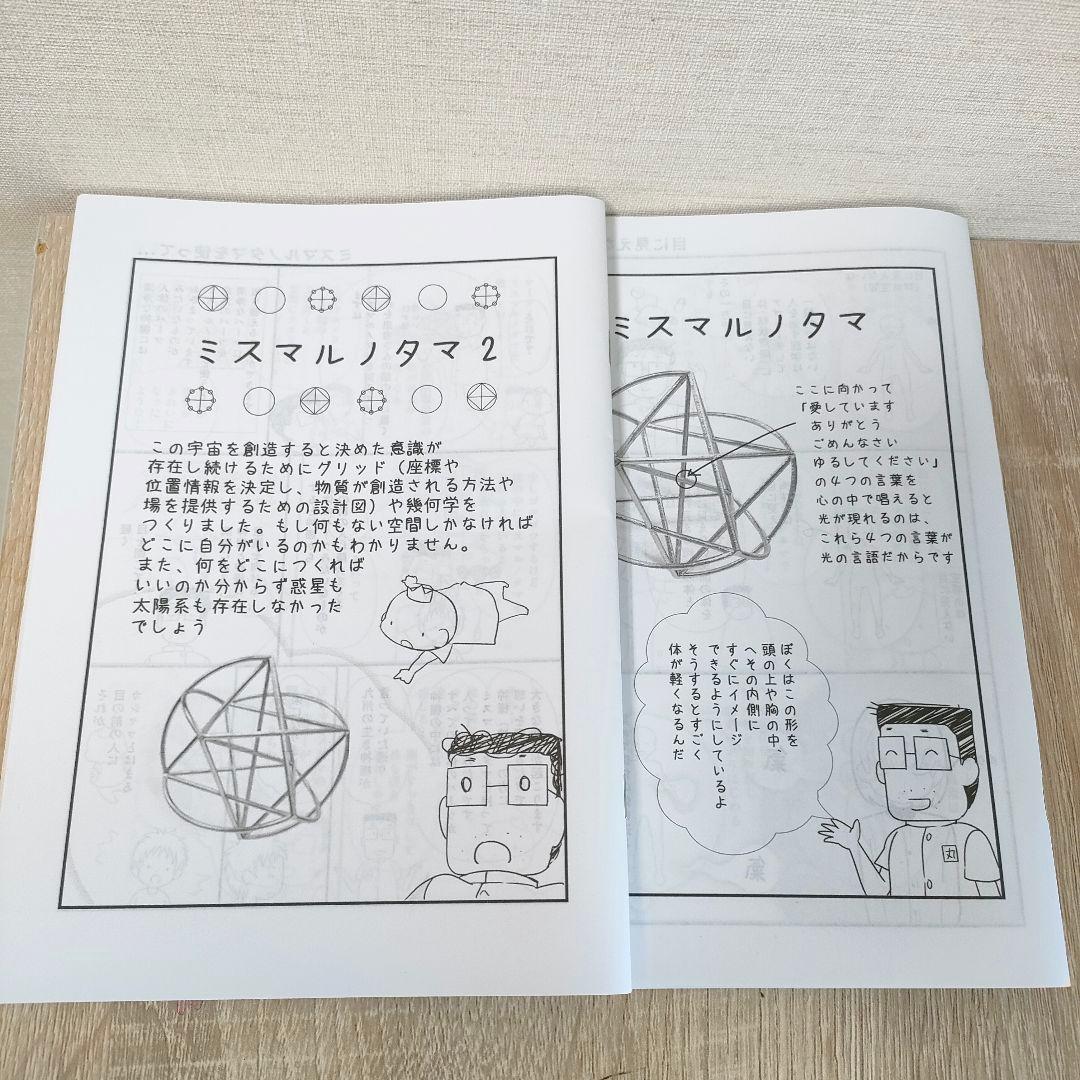 ミスマルノタマ2
この宇宙を創造すると決めた意識が
存在し続けるためにグリッド（座標や
位置情報を決定し、物質が創造される方法や
場を提供するための設計図）や幾何学を
つくりました。もし何もない空間しかなければ
どこに自分がいるのかもわかりません。
また、何をどこにつくれば
いいのか分からず惑星も
太陽系も存在しなかった
でしょう
ミスマルノタマ
ここに向かって
「愛しています
ありがとう
ごめんなさい
ゆるしてください」
の4つの言葉を
心の中で唱えると
光が現れるのは、
これら4つの言葉が
光の言語だからです
ぼくはこの形を
頭の上や胸の中、
へその内側に
すぐにイメージ
できるようにしているよ
そうするとすごく
体が軽くなるんだ
丸